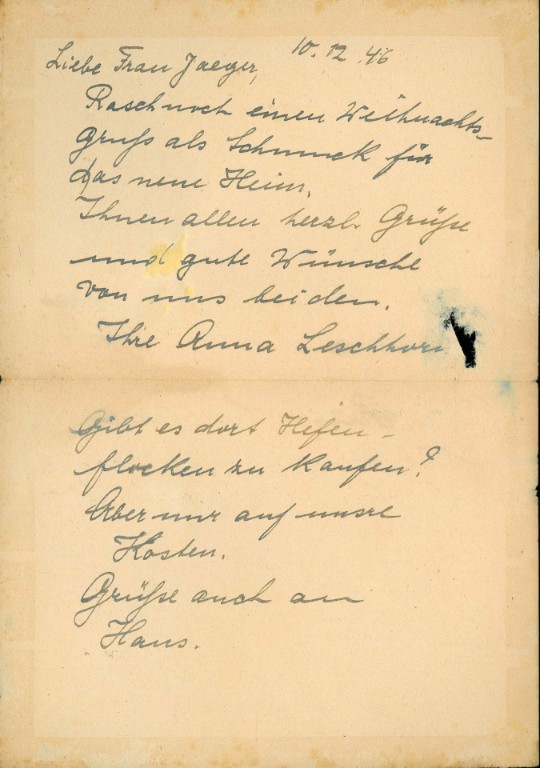 10.12.46
Liebe Frau Jaeger,
Rasch noch einen Weihnachts-
gruß als Schmuck für
das neue Heim.
Ihnen allen herzl. Grüße
und gute Wünsche
von uns beiden.
Ihre Anna Leschhorn
Gibt es dort Hefen-
flocken zu kaufen?
Aber nur auf unsre
Kosten.
Grüße auch an
Hans.